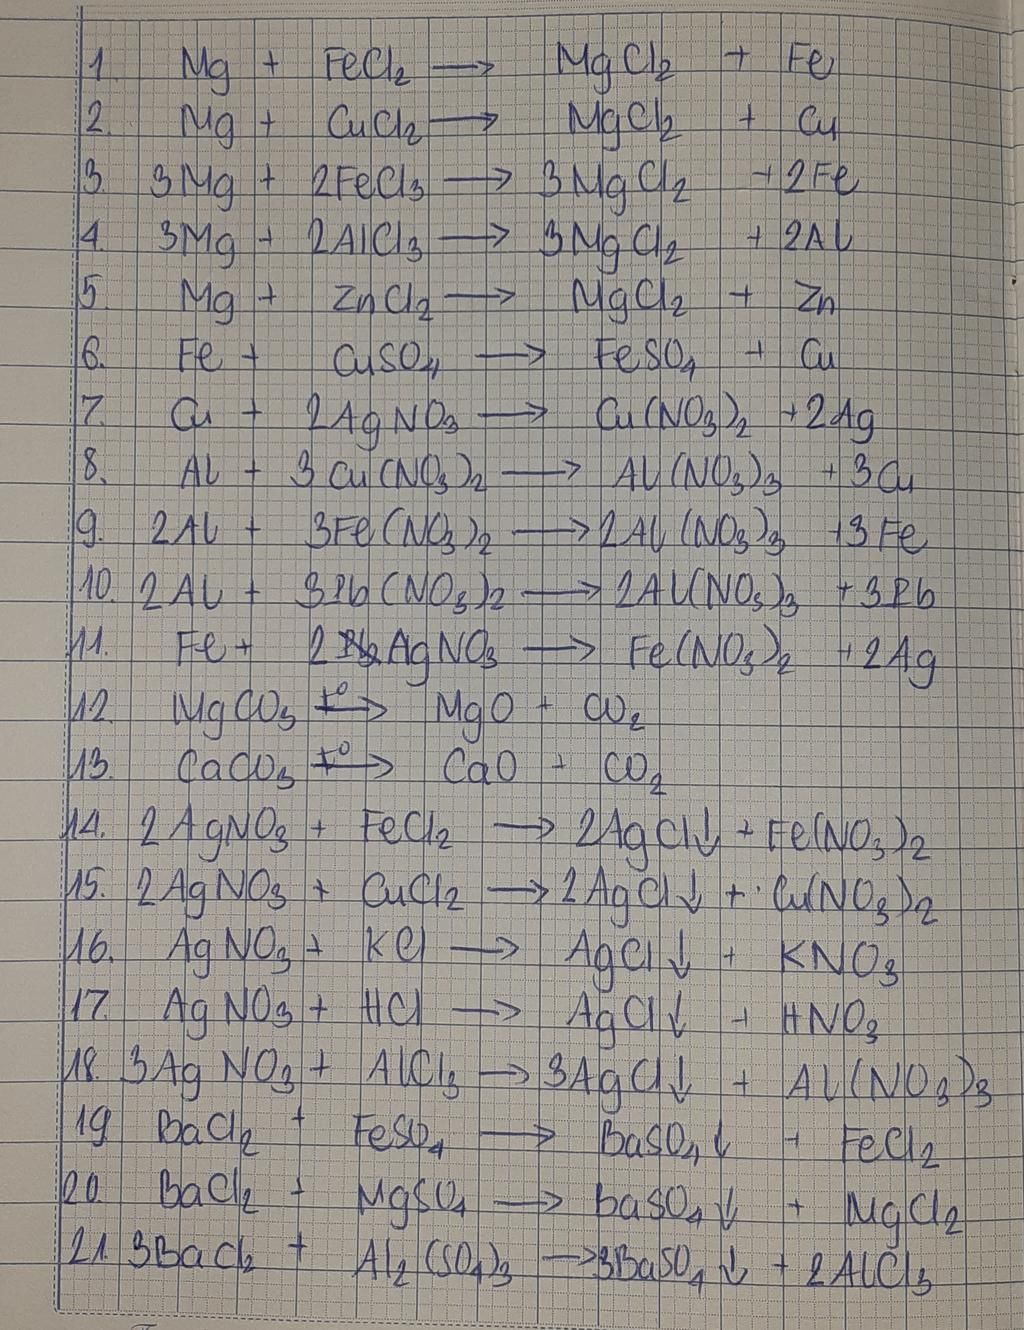 1. Mg + FeCl₂ → MgCl₂ + Fe
2. Mg + CuCl₂ → MgCl₂ + Cu
3. 3Mg + 2FeCl₃ → 3MgCl₂ + 2Fe
4. 3Mg + 2AlCl₃ → 3MgCl₂ + 2Al
5. Mg + ZnCl₂ → MgCl₂ + Zn
6. Fe + CuSO₄ → FeSO₄ + Cu
7. Cu + 2AgNO₃ → Cu(NO₃)₂ + 2Ag
8. Al + 3Cu(NO₃)₂ → Al(NO₃)₃ + 3Cu
9. 2Al + 3Fe(NO₃)₂ → 2Al(NO₃)₃ + 3Fe
10. 2Al + 3Pb(NO₃)₂ → 2Al(NO₃)₃ + 3Pb
11. Fe + 2AgNO₃ → Fe(NO₃)₂ + 2Ag
12. MgCO₃ t⁰→ MgO + CO₂
13. CaCO₃ t⁰→ CaO + CO₂
14. 2AgNO₃ + FeCl₂ → 2AgCl↓ + Fe(NO₃)₂
15. 2AgNO₃ + CuCl₂ → 2AgCl↓ + Cu(NO₃)₂
16. AgNO₃ + KCl → AgCl↓ + KNO₃
17. AgNO₃ + HCl → AgCl↓ + HNO₃
18. 3AgNO₃ + AlCl₃ → 3AgCl↓ + Al(NO₃)₃
19 BaCl₂ + FeSO₄ → BaSO₄↓ + FeCl₂
20. BaCl₂ + MgSO₄ → BaSO₄↓ + MgCl₂
21. 3BaCl₂ + Al₂(SO₄)₃ → 3BaSO₄↓ + 2AlCl₃